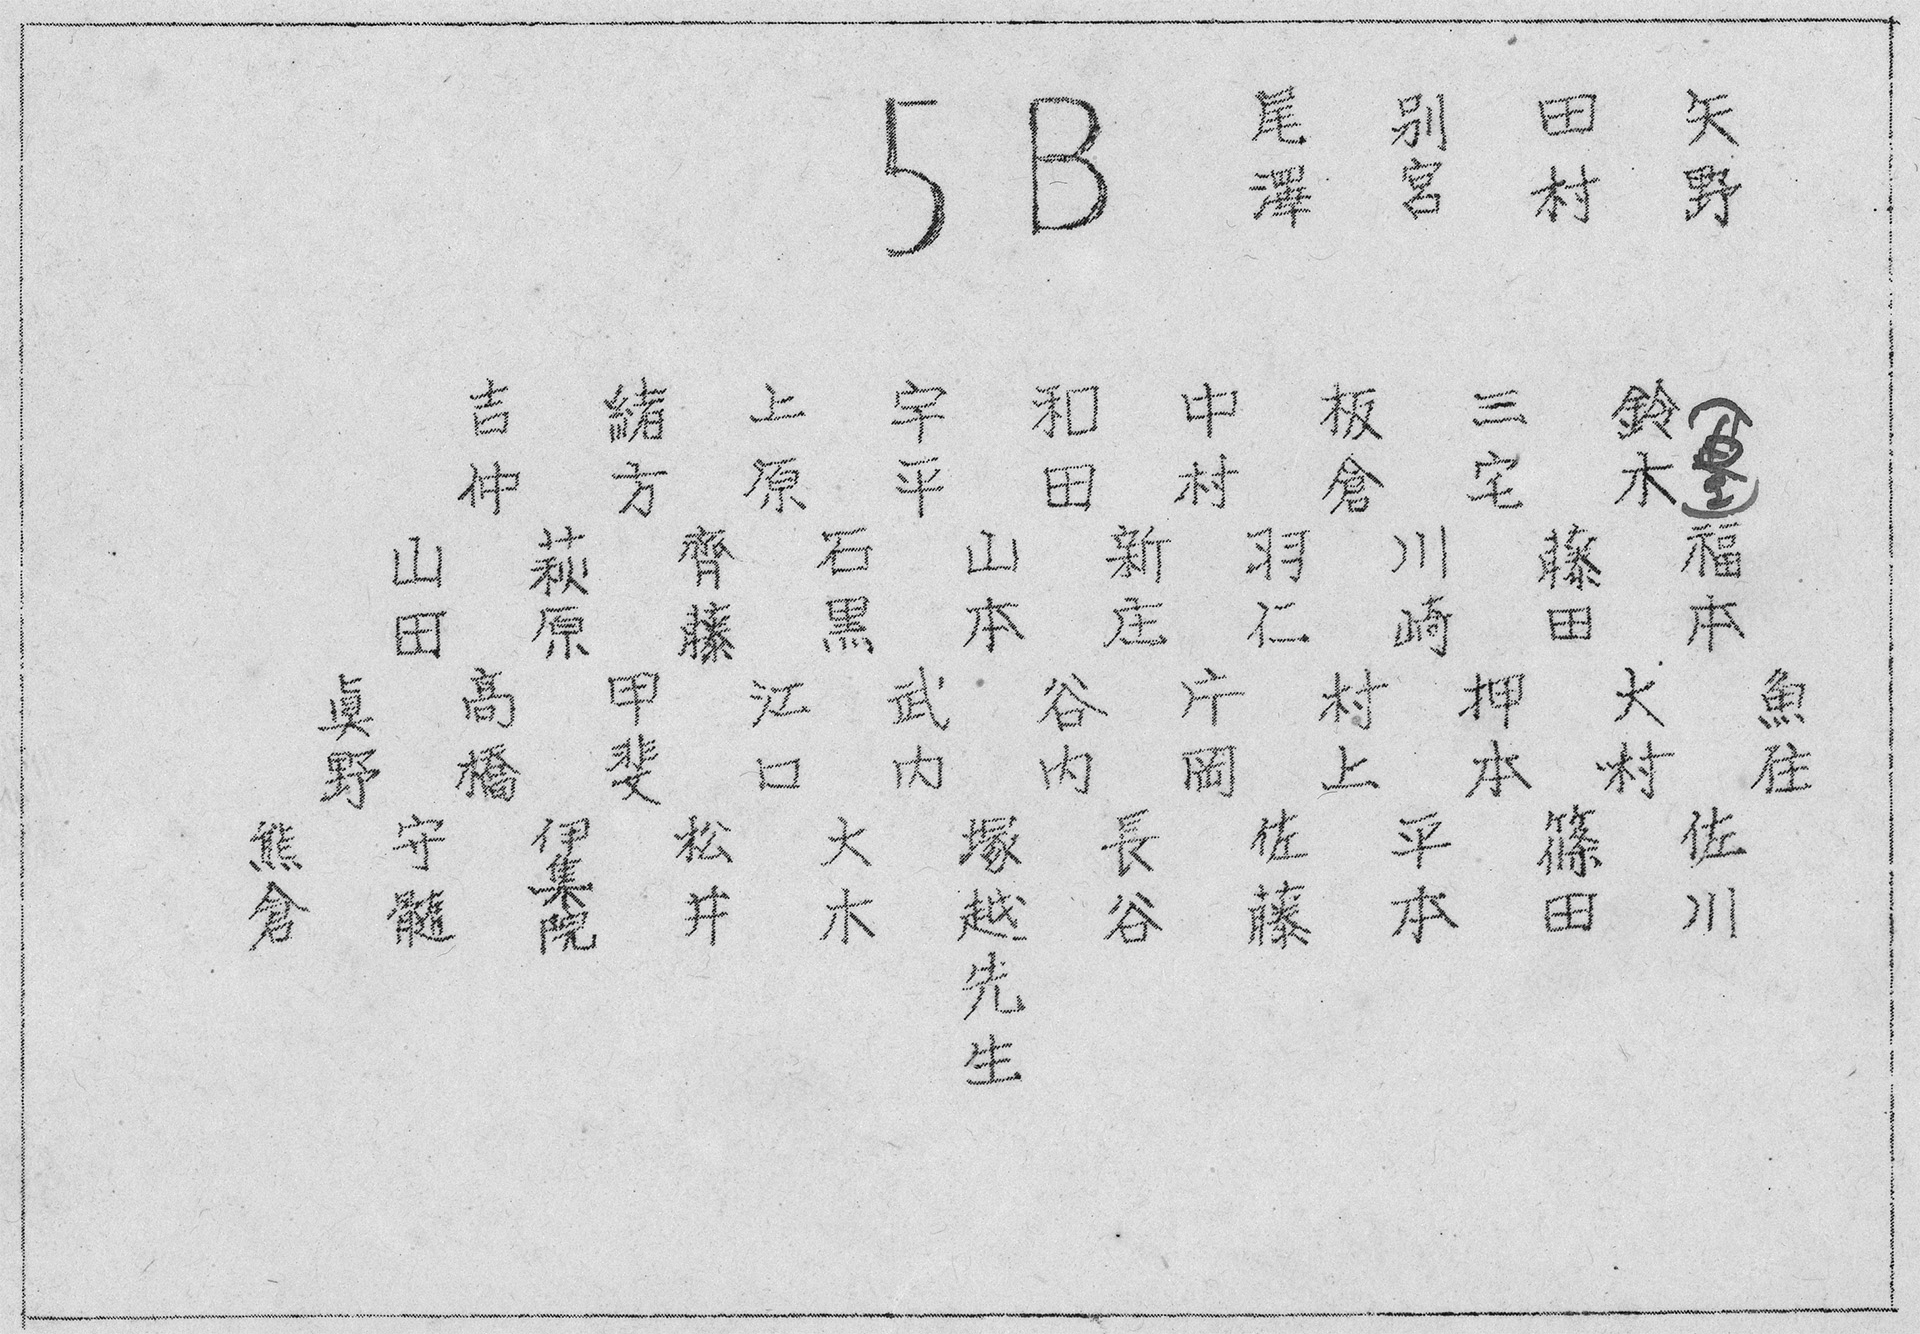 矢野
田村
別宮
尾澤
5B
鈴木
三宅
板倉
中村
和田
宇平
上原
緒方
吉仲
福本
藤田
川崎
羽仁
新庄
山本
石黒
齊藤
萩原
山田
魚住
大村
押本
村上
片岡
谷内
武内
江口
甲斐
高橋
眞野
佐川
篠田
平本
佐藤
長谷
塚越先生
大木
松井
伊集院
守髄
熊倉